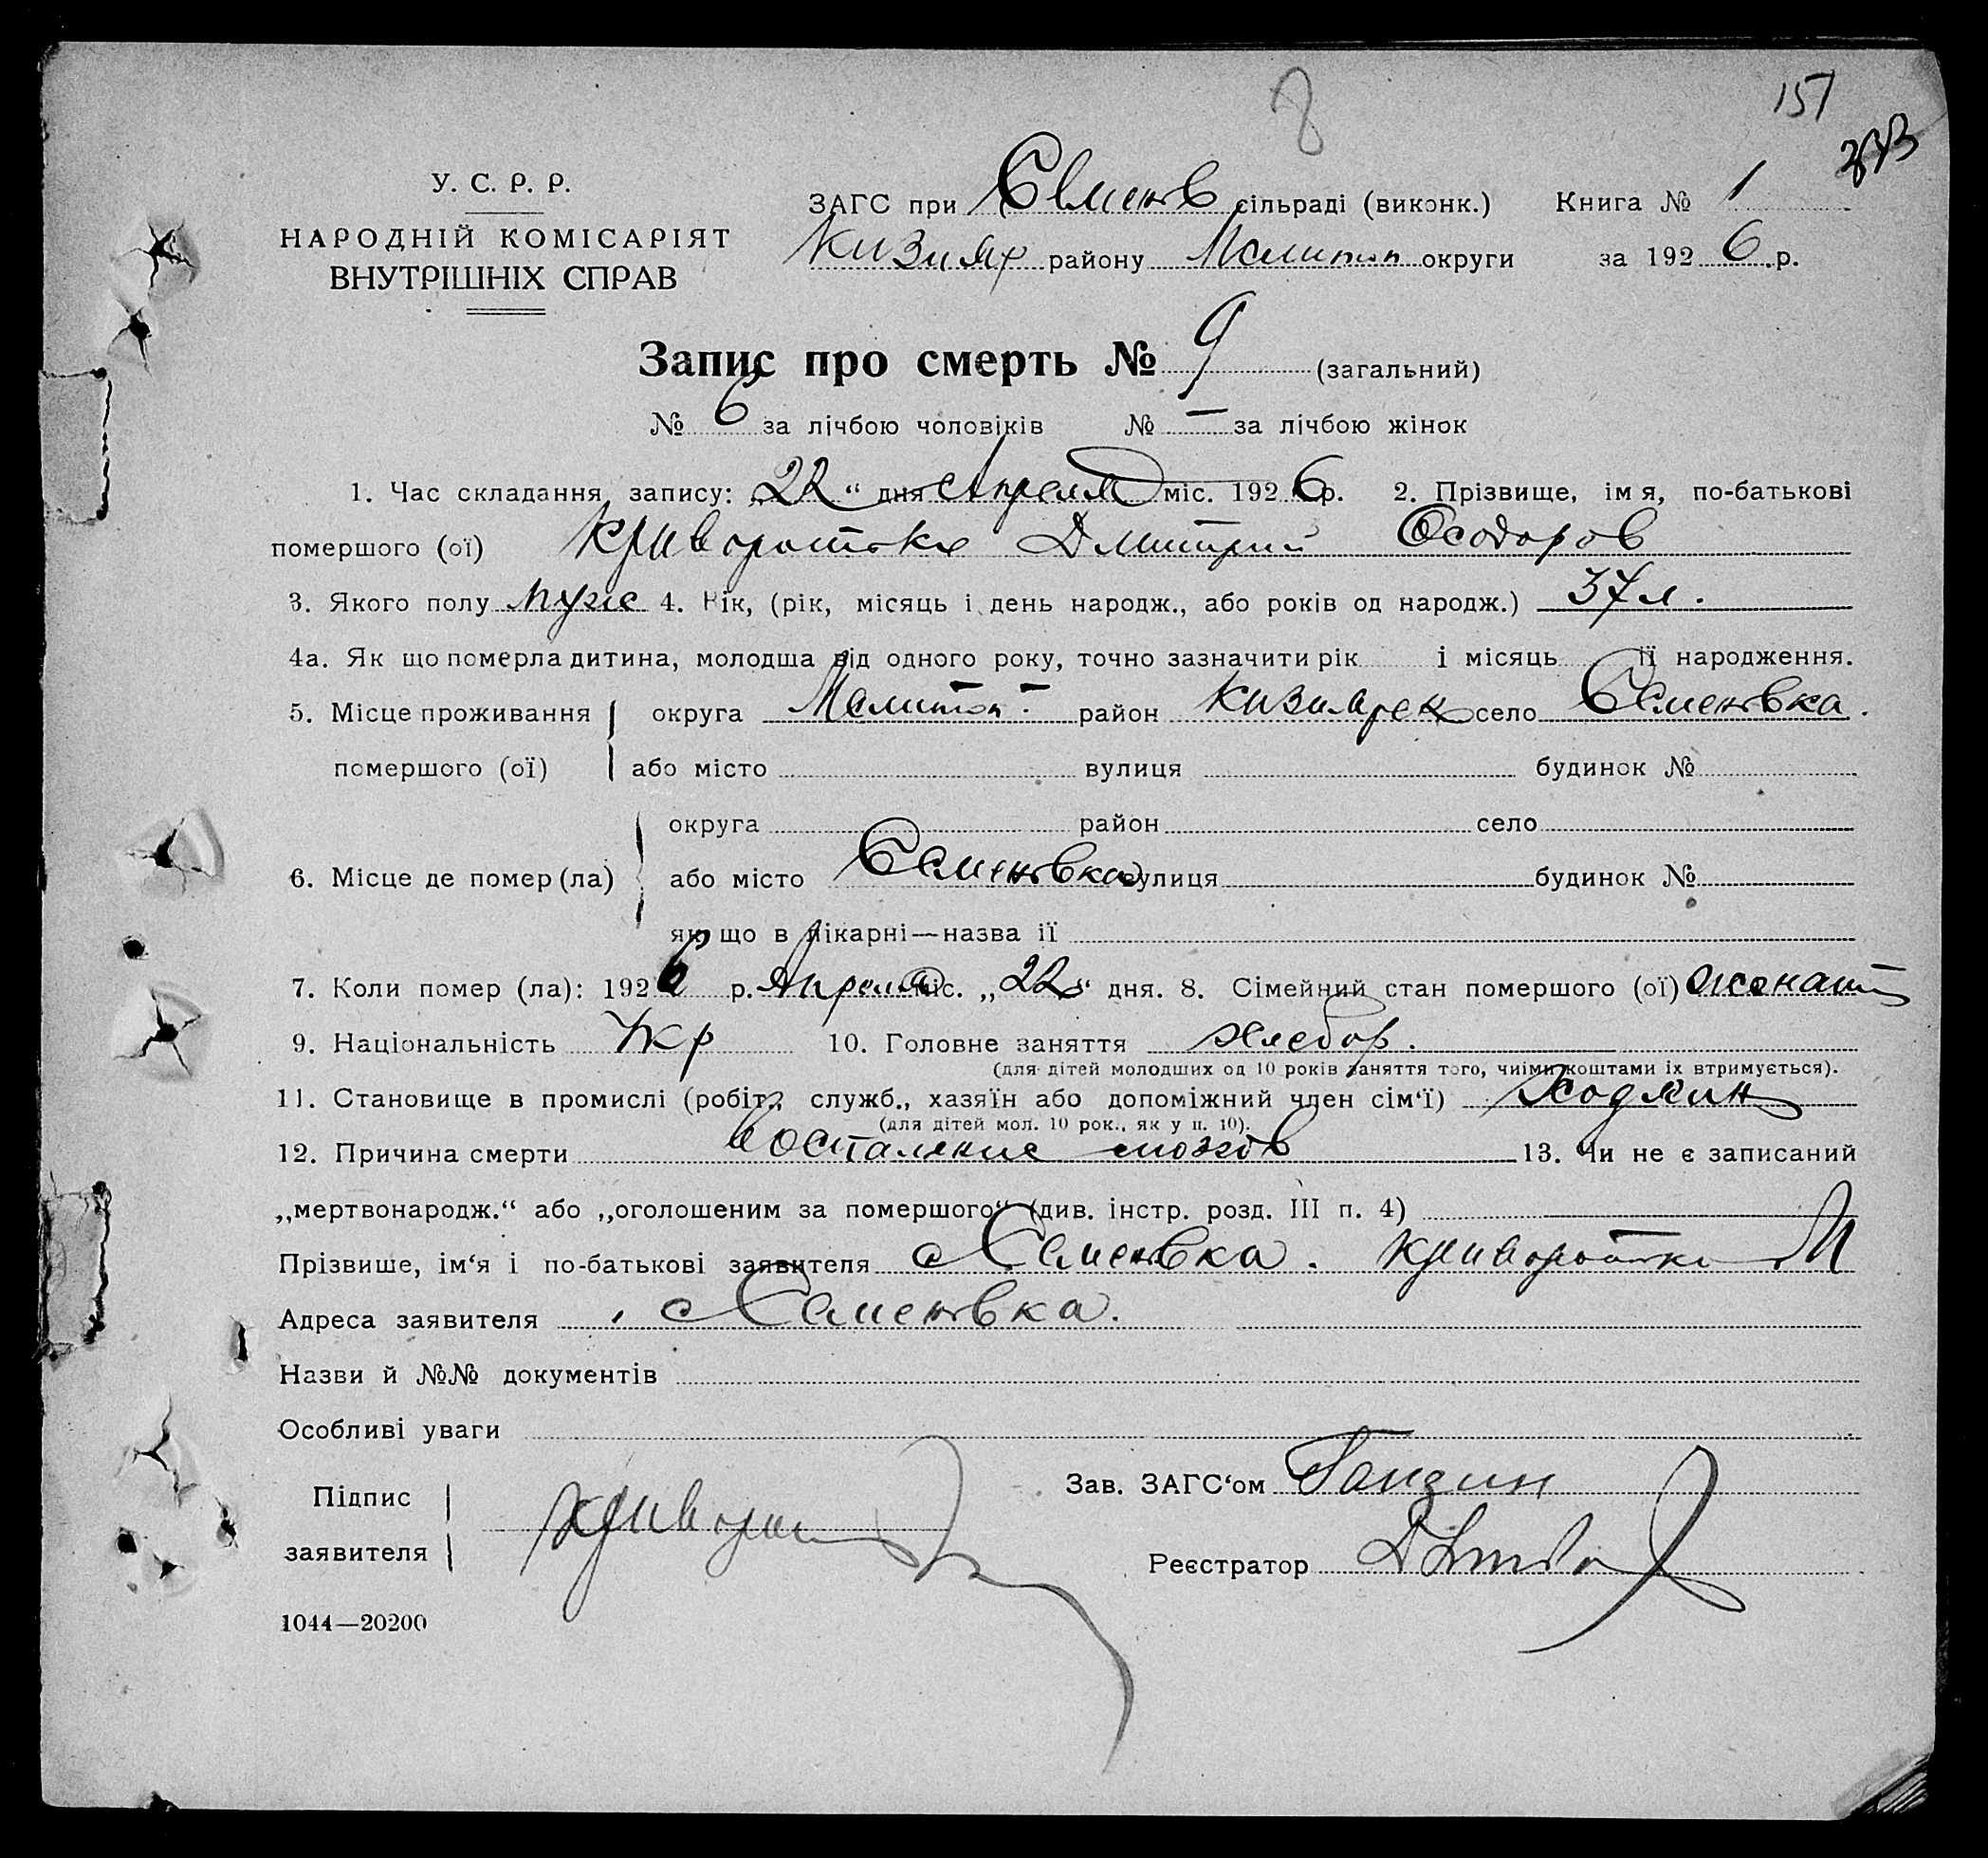 8
157
У. С. Р. Р.
НАРОДНІЙ КОМІСАРІЯТ
ВНУТРІШНІХ СПРАВ
ЗАГС при Семенов сільраді (виконк.) Книга № 1
Кизияр району Мелитоп округи за 1926 р.
Запис про смерть № 9 (загальний)
№ 6 за лічбою чоловіків № — за лічбою жінок
1. Час складання запису: „22“ дня Апреля міс. 1926 р. 2. Прізвище, імя, по-батькові
помершого (ої) Криворотько Дмитрий Феодоров
3. Якого полу муже 4. Рік, (рік, місяць і день народж., або років од народж.) 37 л.
4а. Як що померла дитина, молодша від одного року, точно зазначити рік і місяць її народження.
5. Місце проживання округа Мелитоп. район Кизиярск село Семеновка.
помершого (ої) або місто вулиця будинок №
округа район село
6. Місце де помер (ла) або місто Семеновка вулиця будинок №
як що в лікарні—назва її
7. Коли помер (ла): 1926 р. Апреля міс. „22“ дня. 8. Сімейний стан помершого (ої) женат
9. Національність Укр 10. Головне заняття хлебор.
(для дітей молодших од 10 років заняття того, чиїми коштами їх втримується).
11. Становище в промислі (робітн., служб., хазяїн або допоміжний член сім‘ї)
(для дітей мол. 10 рок., як у п. 10).
12. Причина смерти Воспаление мозгов 13. Чи не є записаний
„мертвонародж.“ або „оголошеним за помершого“ (див. інстр. розд. III п. 4)
Прізвише, ім‘я і по-батькові заявителя с Семеновка. Криворотько И
Адреса заявителя с Семеновка.
Назви й №№ документів
Особливі уваги
Підпис
заявителя
Зав. ЗАГС‘ом
Реєстратор
1044—20200